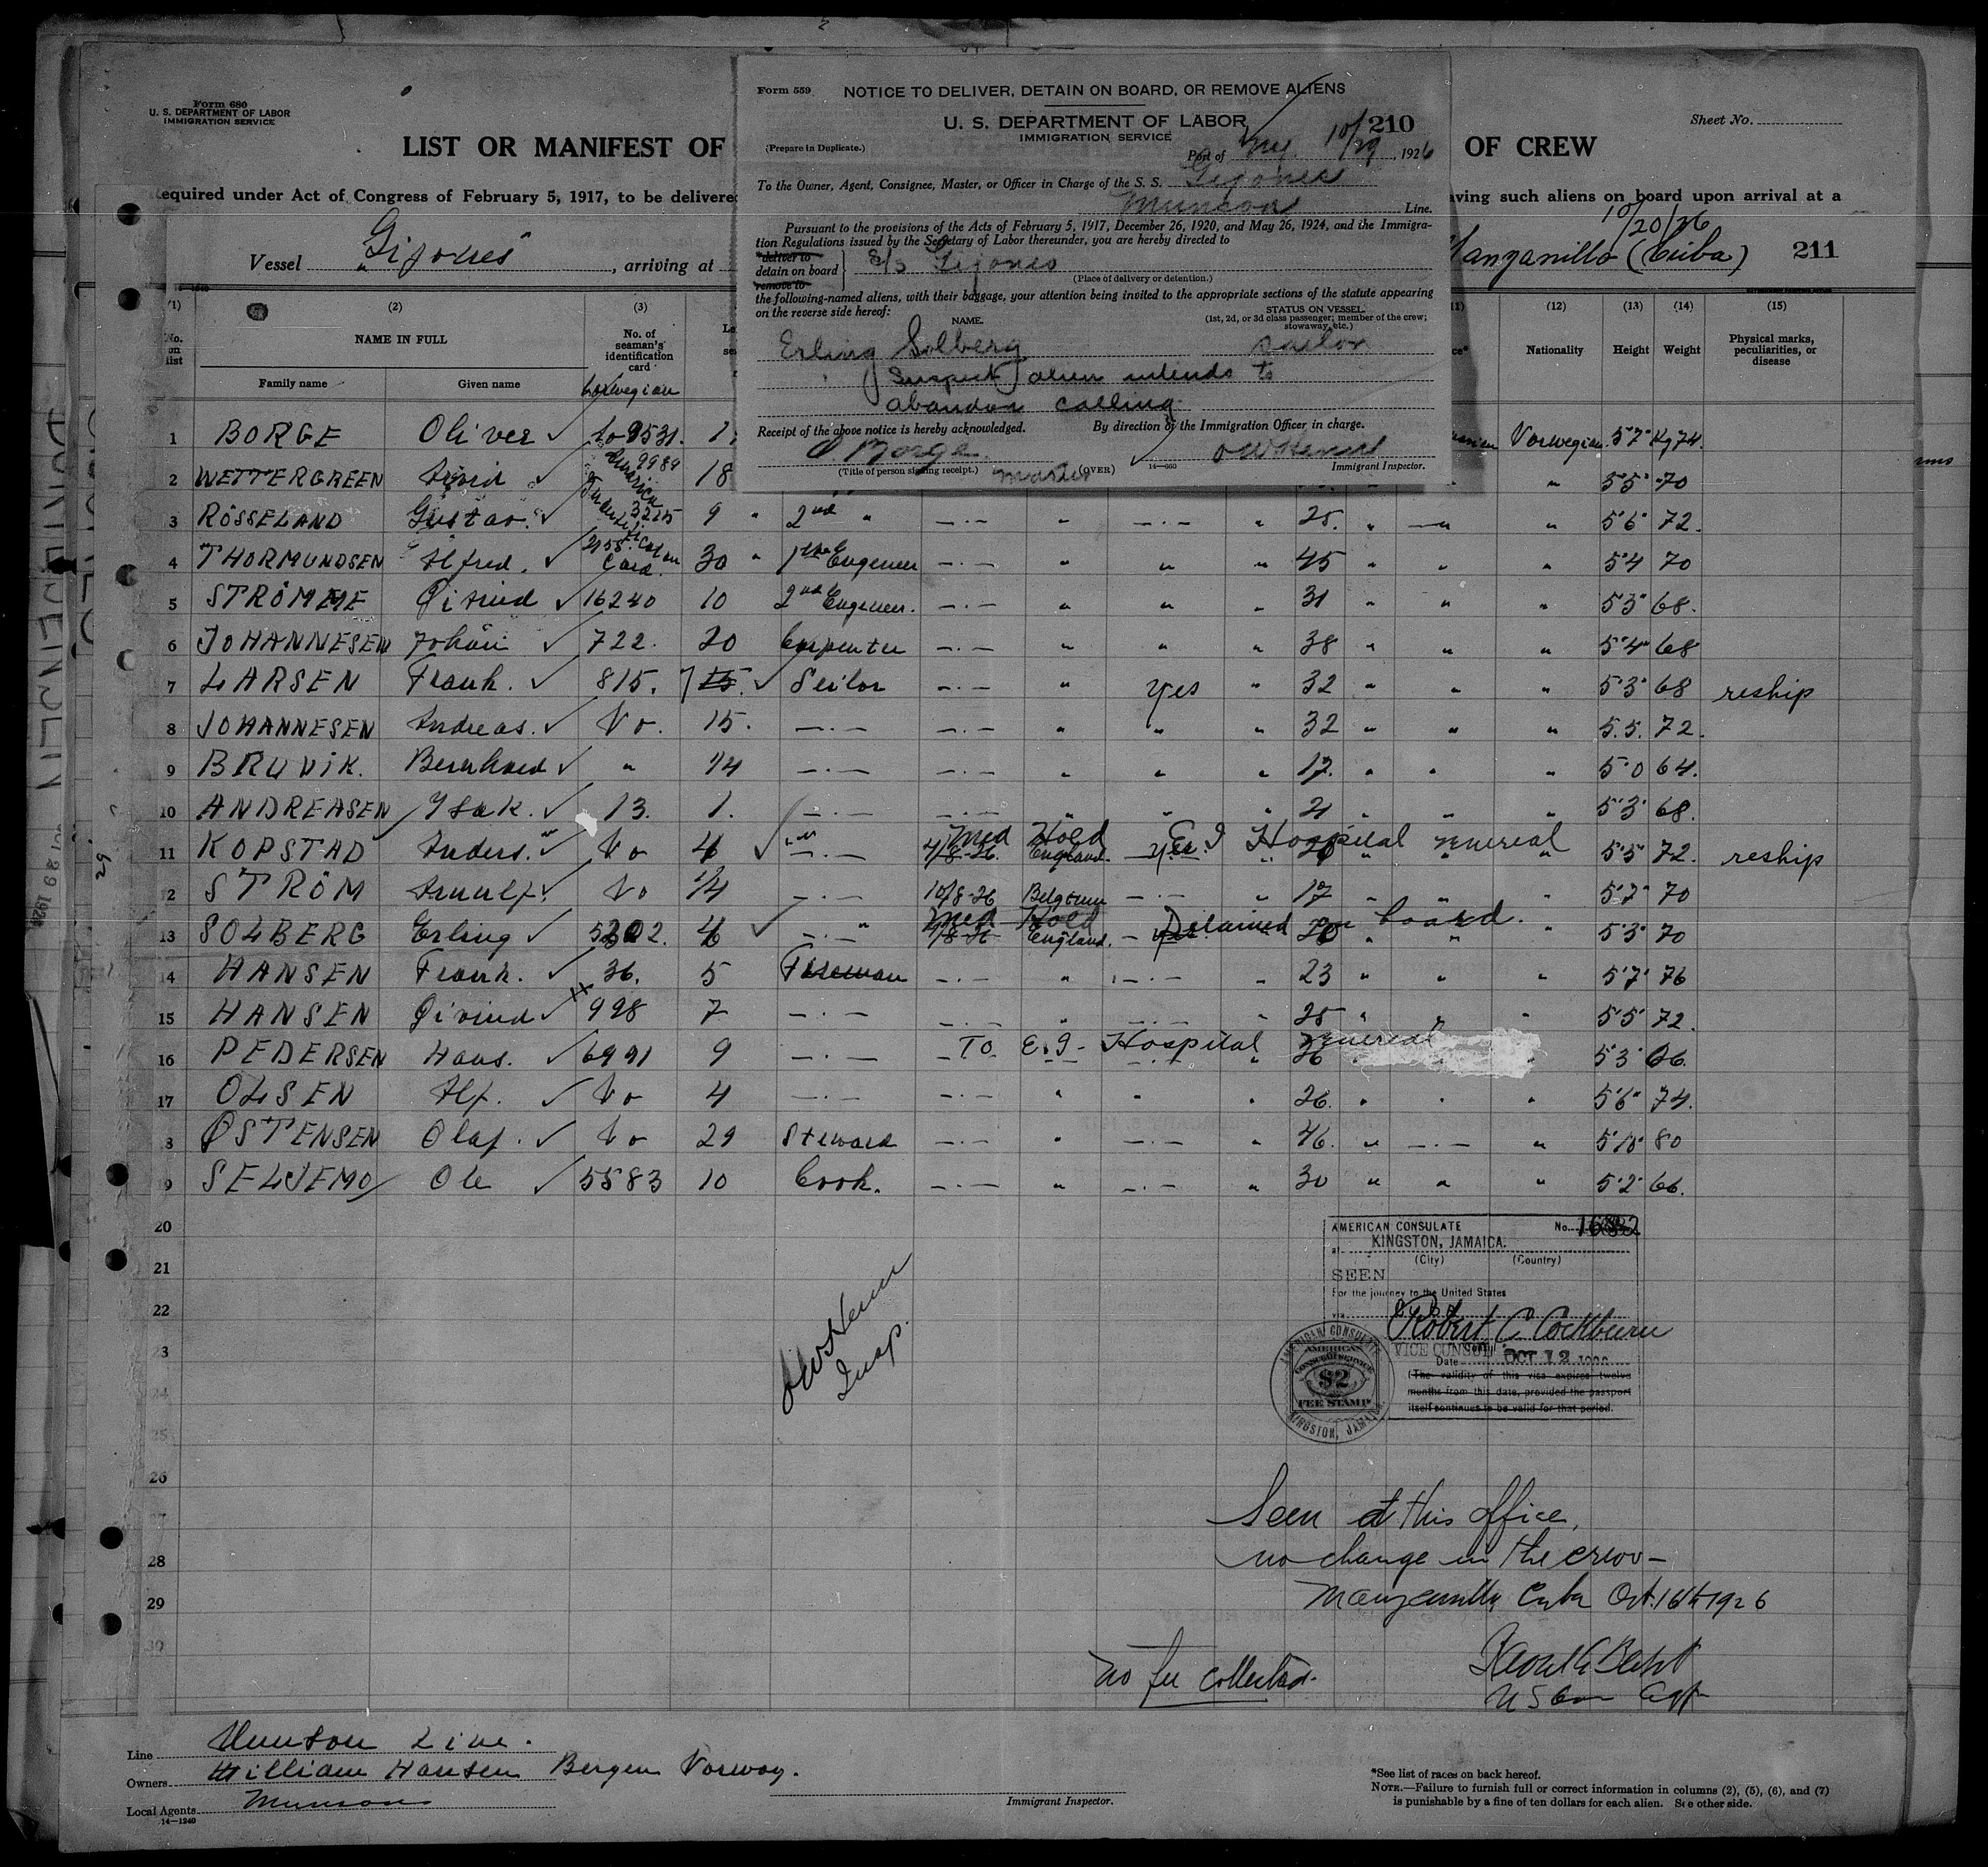 Form 680
U. S. DEPARTMENT OF LABOR
IMMIGRATION SERVICE
LIST OR MANIFEST OF
OF CREW
Sheet No.
equired under Act of Congress of February 5, 1917, to be delivere
aving such aliens on board upon arrival at a
10/20/26
Vessel Gijones, arriving at
anzanillo (Cuba) 211
Form 559 NOTICE TO DELIVER, DETAIN ON BOARD, OR REMOVE ALIENS
U. S. DEPARTMENT OF LABOR 210
IMMIGRATION SERVICE
(Prepare in Duplicate.)
Port of N.Y. 10/29, 1926
To the Owner, Agent, Consignee, Master, or Officer in Charge of the S. S. Gijones
Munson Line.
Pursuant to the provisions of the Acts of February 5, 1917, December 26, 1920, and May 26, 1924, and the Immigra-
tion Regulations issued by the Secretary of Labor thereunder, you are hereby directed to
deliver to
detain on board S/S Gijones
remove to
(Place of delivery or detention.)
the following-named aliens, with their baggage, your attention being invited to the appropriate sections of the statute appearing
on the reverse side hereof:
NAME.
STATUS ON VESSEL.
(1st, 2d, or 3d class passenger; member of the crew;
stowaway, etc.)
Erling Solberg sailor
(Suspect) alien intends to
abandon calling
Receipt of the above notice is hereby acknowledged. By direction of the Immigration Officer in charge.
O. Borge
(Title of person signing receipt.) Master (OVER) 14—660 Immigrant Inspector.
(1) (2) (3) (12) (13) (14) (15)
No. on list
NAME IN FULL
Family name Given name
No. of seaman's identification card
Norwegian
Nationality Height Weight
Physical marks, peculiarities, or disease
1 BORGE Oliver Norwegian 5'7" Kg 74
2 WETTERGREEN 9989 18 " 5'5" 70
3 RÖSSELAND Gustav 3215 9 " 2nd " —·— " —·— " 25. " —" " 5'6" 72.
4 THORMUNDSEN Alfred. 2158 Card 30 " 1the Engeneer —·— " " " 45 " " " 5'4 70
5 STRÖMME Öivind 16240 10 2nd Engeneer. —·— " " " 31 " " " 5'3" 68.
6 JOHANNESEN Johan 722. 20 Carpenter —·— " " " 38 " " " 5'4" 68
7 LARSEN Frank. 815. 7 15. Seilor —·— " Yes " 32 " " " 5'3" 68 reship
8 JOHANNESEN Andreas. No. 15. —·— —·— " " " 32 " " " 5.5. 72.
9 BRUVIK. Bernhard " 14 —·— —·— " " " 17. " " " 5'0 64.
10 ANDREASEN Isak. 13. 1. —·— —·— " " " 21 " " " 5'3" 68.
Med Hold E. I Hospital venereal
11 KOPSTAD Anders. No 4 —·— 4/8-26. England. Yes. " " " 5'5 72. reship
12 STRÖM Arnulf. No 1/4 —·— 10/8-26 Belgium —·— " 17 " " " 5'7" 70
Med Hold Detained on board.
13 SOLBERG Erling 5202. 4 —·— England. — " " " " 5'3" 70
14 HANSEN Frank. 36. 5 Fireman —·— " —·— " 23 " " " 5'7" 76
15 HANSEN Öivind 998 7 —·— —·— " —·— " 25 " " " 5'5" 72.
To E. I- Hospital venereal
16 PEDERSEN Hans. 6991 9 —·— 26 5'3" 66.
17 OLSEN Alf. No 4 —·— —·— " " " 26. " " " 5'6" 74.
8 ØSTENSEN Olaf. No 29 Steward —·— " —·— " 46. " —·— " 5'10" 80
9 SELJEMO Ole 5583 10 Cook. —·— " —·— " 30 " " " 5'2" 66.
20
21
22
3
24
25
26
27
28
29
30
Insp.
AMERICAN CONSULATE No.
at KINGSTON, JAMAICA.
(City) (Country)
SEEN
For the journey to the United States
via Cuba
Robert C Cockburn
VICE CONSUL
Date OCT 12
(The validity of this visa expires twelve
months from this date, provided the passport
itself continues to be valid for that period.
AMERICAN CONSULATE
AMERICAN
CONSULAR SERVICE
$2
FEE STAMP
KINGSTON, JAMAICA
Seen at this office,
no change in the crew—
Manzanillo Cuba Oct. 16th 1926
No fee collected.
U S Con Agt
Line Munson Line.
Owners William Hansen Bergen Norway.
Local Agents Munson
14—1240
Immigrant Inspector.
*See list of races on back hereof.
NOTE.—Failure to furnish full or correct information in columns (2), (5), (6), and (7)
is punishable by a fine of ten dollars for each alien. See other side.